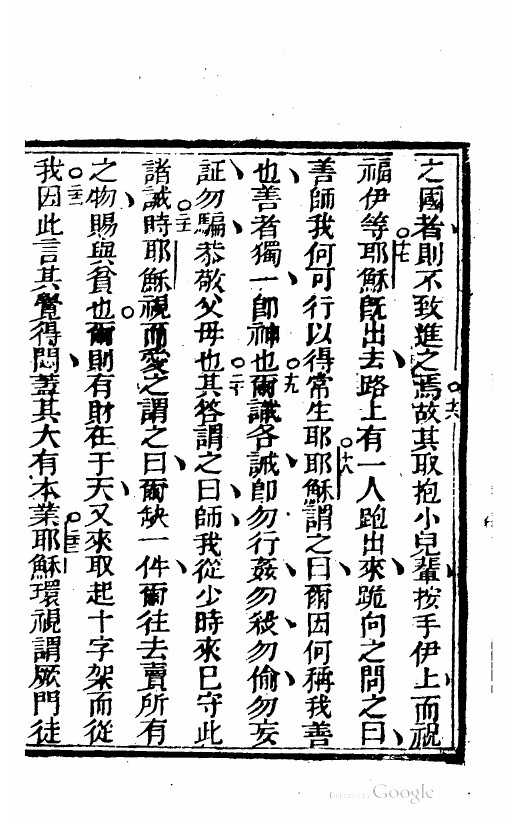 之國者則不致進之焉十六故其取抱小兒輩按手伊上而祝
福伊等十七耶穌既出去路上有一人跑出來跪向之問之曰
善師我何可行以得常生耶十八耶穌謂之曰爾因何稱我善
也善者獨一卽神也十九爾識各誡卽勿行姦勿殺勿偷勿妄
証勿騙恭敬父母也二十其答謂之曰師我從少時來已守此
諸誡二一時耶穌視而愛之謂之曰爾缺一件爾往去賣所有
之物賜與貧也爾則有財在于天又來取起十字架而從
我二二因此言其覺得悶蓋其大有本業二三耶穌環視謂厥門徒
Digitized by Google